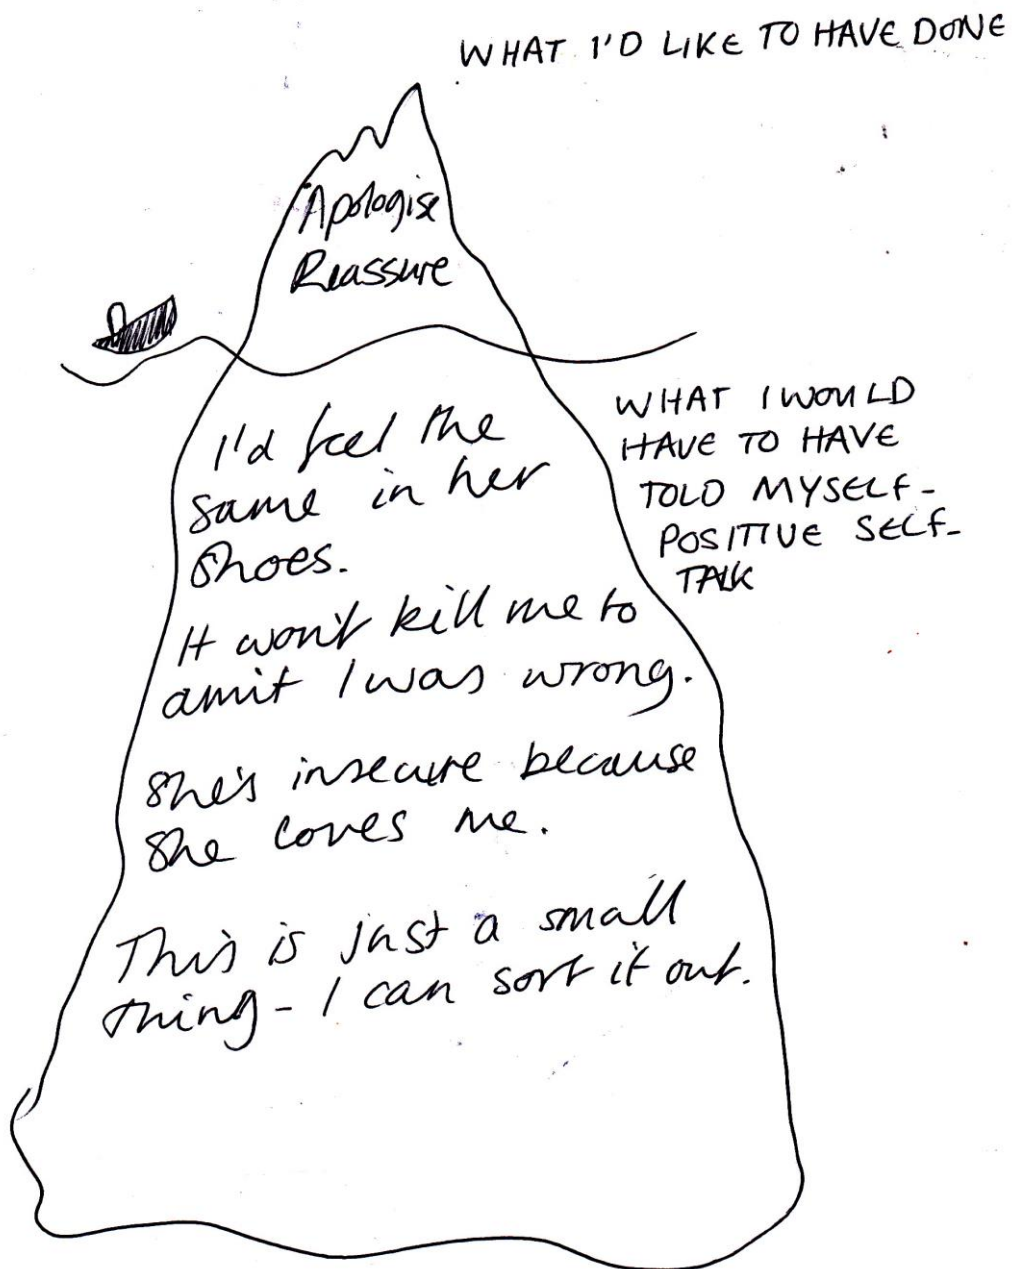 WHAT I'D LIKE TO HAVE DONE
Apologise
Reassure
WHAT I WOULD
HAVE TO HAVE
TOLD MYSELF -
POSITIVE SELF-
TALK
I'd feel the
same in her
shoes.
It won't kill me to
amit I was wrong.
She's insecure because
she loves me.
This is just a small
thing - I can sort it out.